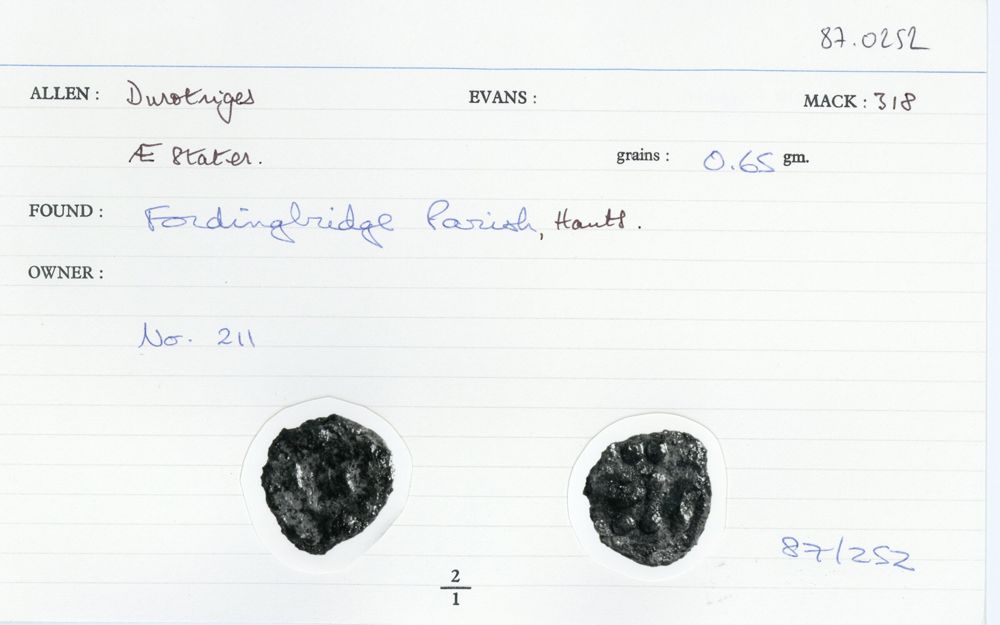 87.0252
ALLEN : Durotriges EVANS : MACK : 318
Æ Stater. grains : 0.65 gm.
FOUND : Fordingbridge Parish, Hants.
OWNER :
No. 211
87/252
2
1